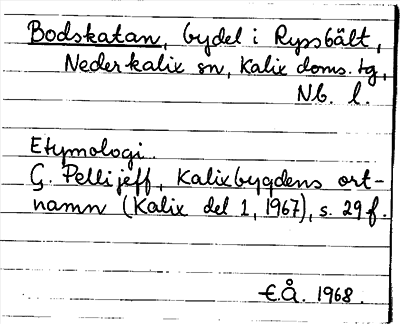 Bodskatan, bydel i Ryssbält,
Nederkalix sn, Kalix doms. tg,
Nb. l.
Etymologi
G. Pellijeff, Kalixbygdens ort-
namn (Kalix del 1, 1967), s. 29 f.
E.Å. 1968.